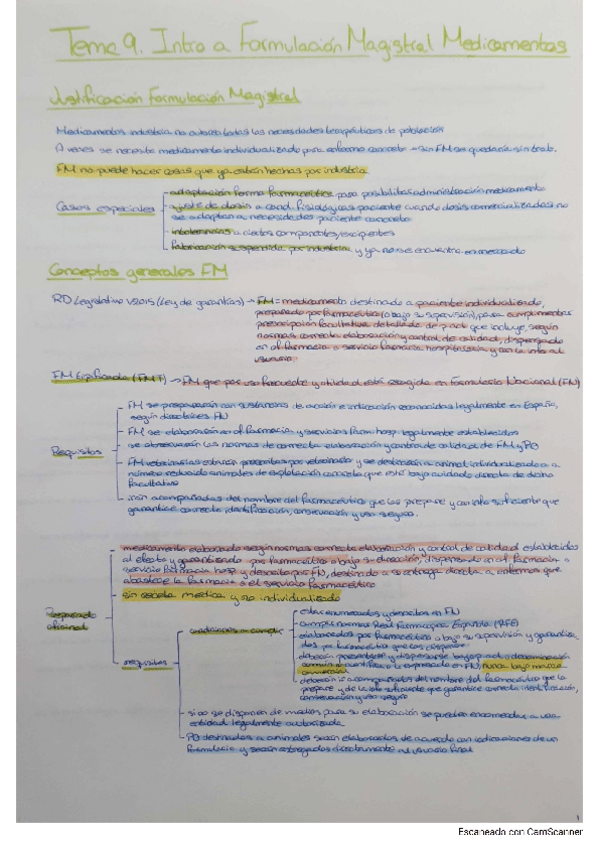 Tema 9. Intro a Formulación Magistral Medicamentos
Justificación Formulación Magistral
Medicamentos industria no abarca todas las necesidades terapéuticas de población
A veces se necesita medicamento individualizado para enfermo concreto → sin FM se quedaría sin trat.
FM no puede hacer cosas que ya están hechas por industria
Casos especiales
adaptación forma farmacéutica para posibilitar administración medicamento
ajuste de dosis a cond. fisiológicas paciente cuando dosis comercializadas no
se adaptan a necesidades paciente concreto
intolerancias a ciertos componentes/excipientes
fabricación suspendida por industria y ya no se encuentra en mercado
Conceptos generales FM
RD Legislativo 1/2015 (Ley de garantías) → FM = medicamento destinado a paciente individualizado,
preparado por farmacéutico (o bajo su supervisión), para cumplimentar
prescripción facultativa detallada de p.act que incluye, según
normas correcta elaboración y control de calidad, dispensado
en of. farmacia o servicio farmacia hospitalaria y con la info al
usuario.
FM Tipificada (FMT) → FM que por uso frecuente y utilidad está recogida en Formulario Nacional (FN)
Requisitos
FM se prepararán con sustancias de acción e indicación reconocidas legalmente en España,
según directrices FN
FM se elaborarán en of. farmacia y servicios farm. hosp. legalmente establecidos
se observarán las normas de correcta elaboración y control de calidad de FM y PO
FM veterinarias estarán prescritas por veterinario y se destinarán a animal individualizado o a
número reducido animales de explotación concreta que esté bajo cuidado directo de dicho
facultativo
irán acompañadas del nombre del farmacéutico que las prepare y con info suficiente que
garantice correcta identificación, conservación y uso seguro.
Preparado
oficinal
medicamento elaborado según normas correcta elaboración y control de calidad establecidas
al efecto y garantizado por farmacéutico o bajo su dirección, dispensado en of. farmacia o
servicio farmacia hosp y descrito por FN, destinado a su entrega directa a enfermos que
abastece la farmacia o el servicio farmacéutico
sin receta médica y no individualizado
requisitos
condiciones a cumplir
estar enumerados y descritos en FN
cumplir normas Real Farmacopea Española (RFE)
elaborados por farmacéutico o bajo su supervisión y garantiza-
dos por farmacéutico que los dispense
deberán presentarse y dispensarse bajo p.act o denominación
común o científica o la expresada en FN, nunca bajo marca
comercial
deberán ir acompañados del nombre del farmacéutico que lo
prepare y de la info suficiente que garantice correcta identificación,
conservación y uso seguro
si no se disponen de medios para su elaboración se pueden encomendar a una
entidad legalmente autorizada
PO destinados a animales serán elaborados de acuerdo con indicaciones de un
formulario y serán entregados directamente al usuario final
1
Escaneado con CamScanner